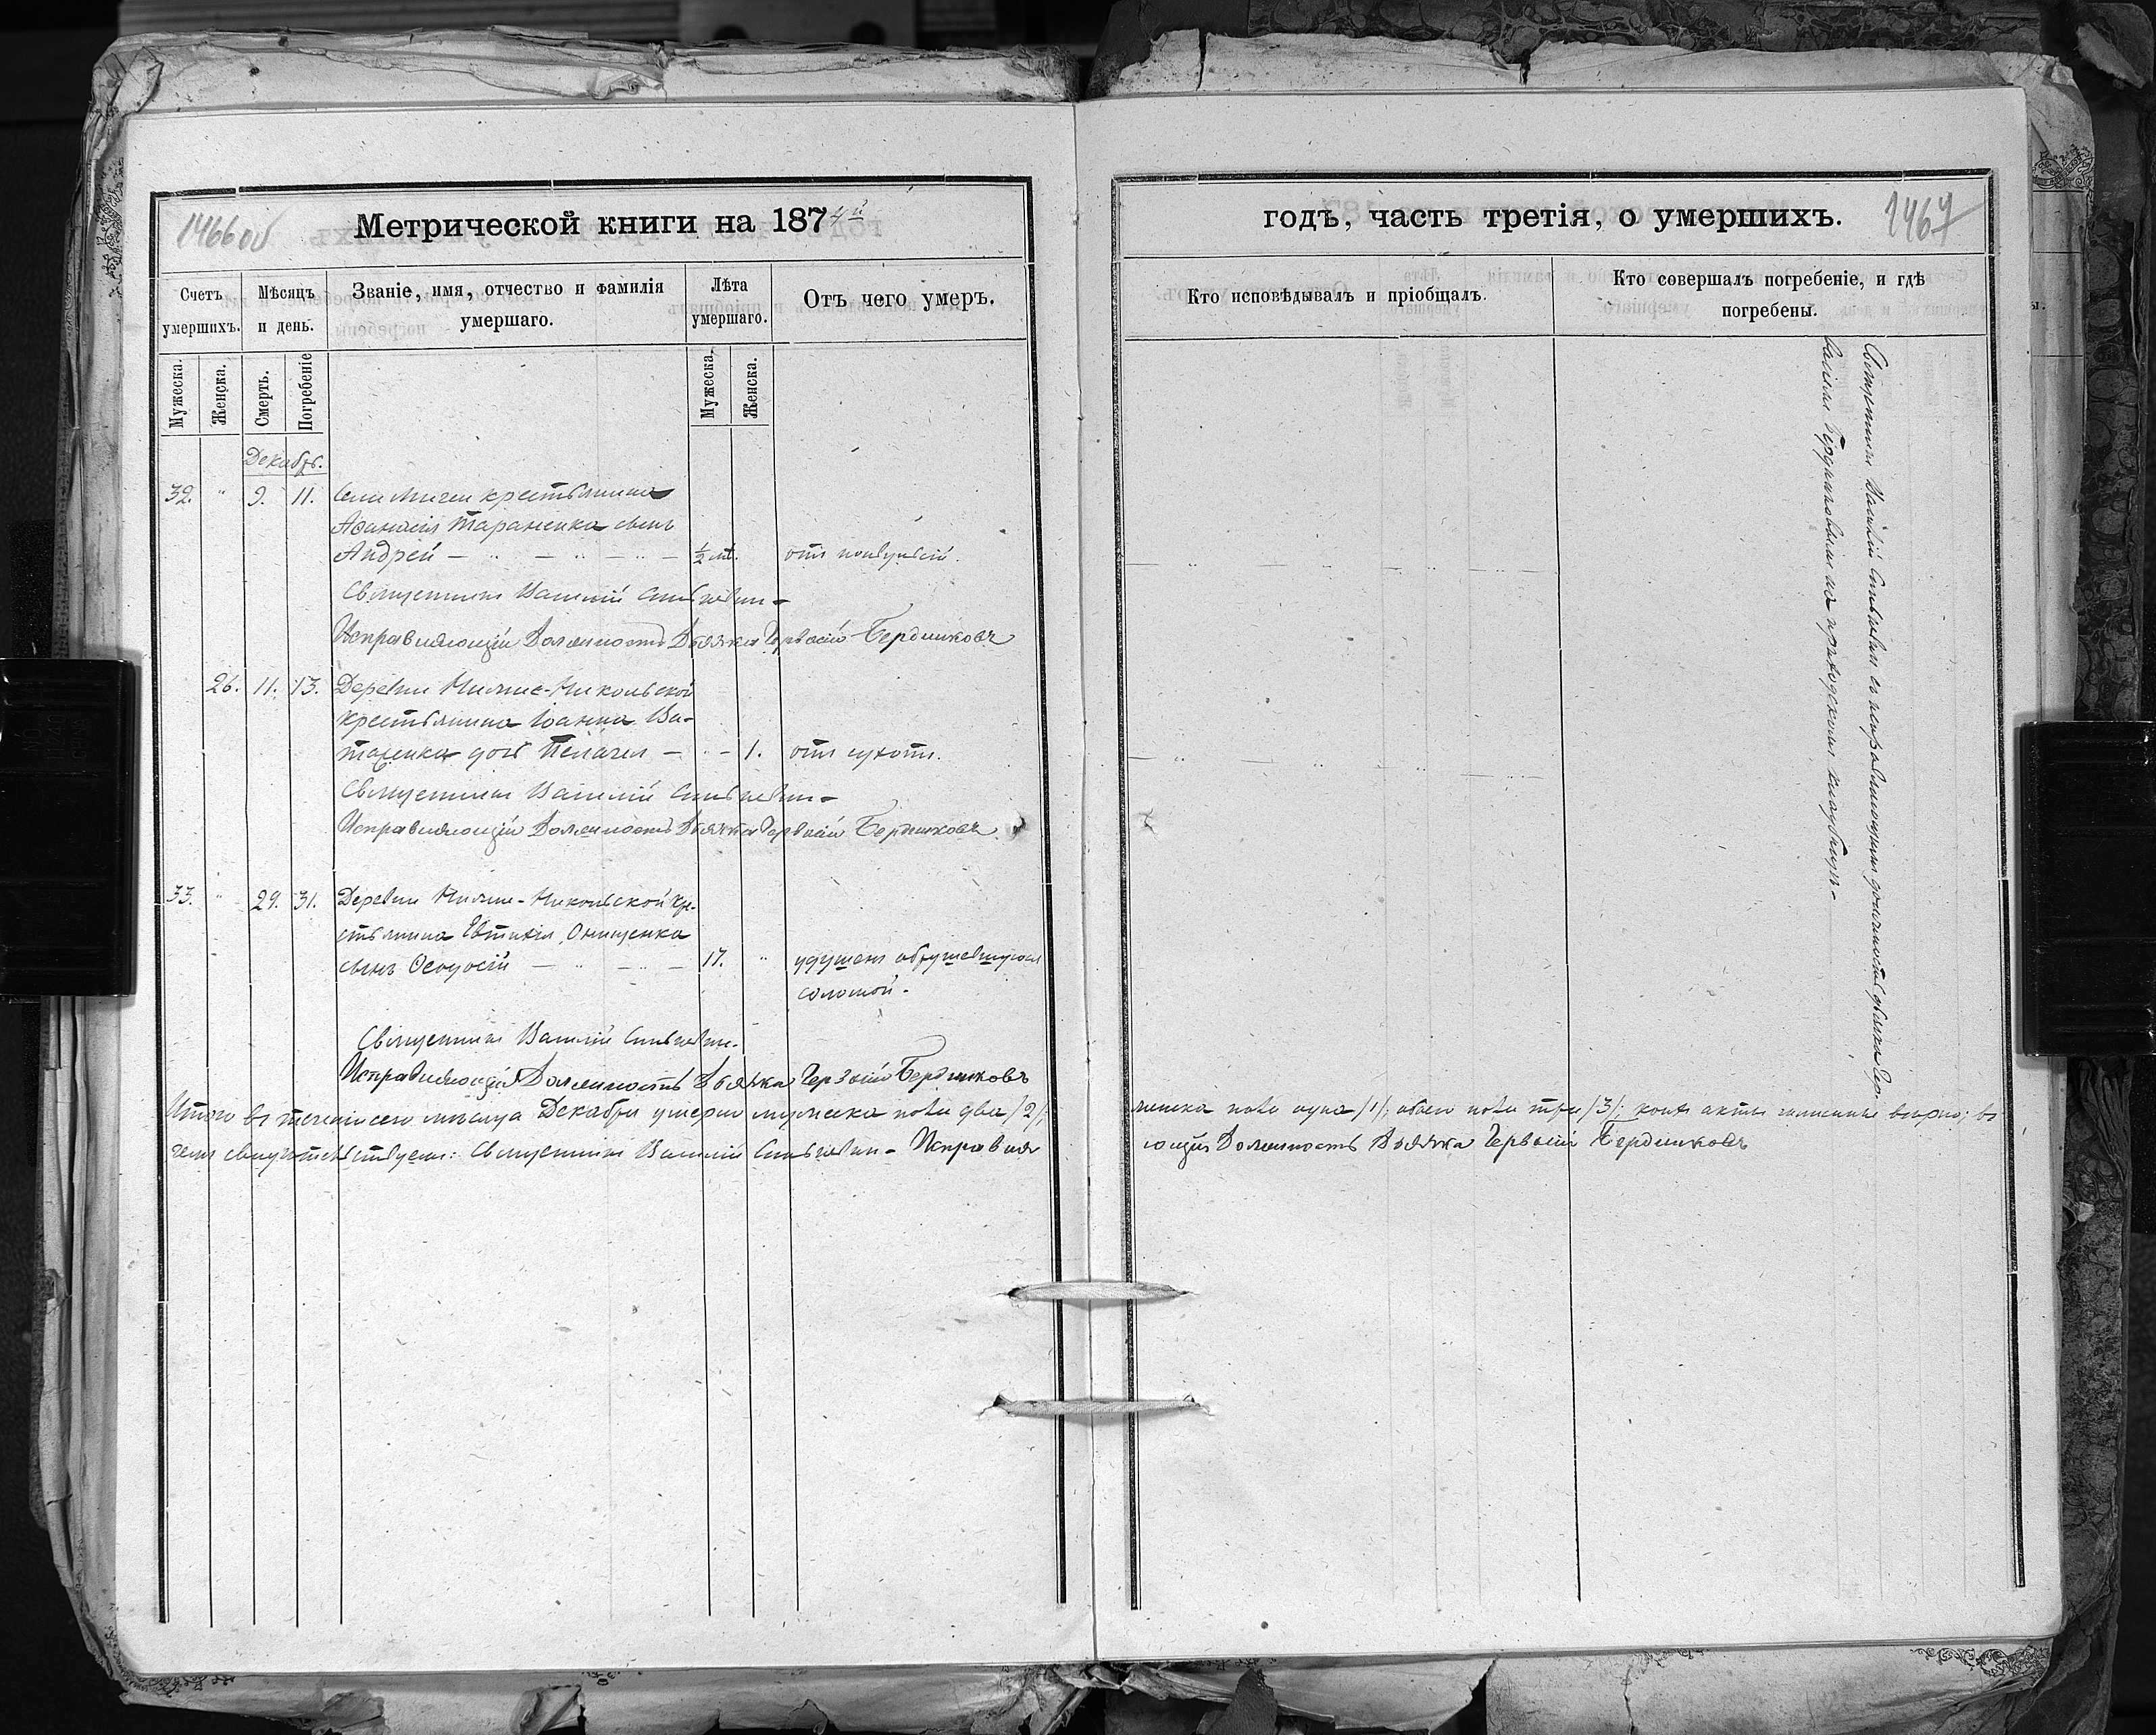 1466об
Метрической книги на 1874й
Счетъ умершихъ.
Мѣсяцъ и день.
Званіе, имя, отчество и фамилія умершаго.
Лѣта умершаго.
Отъ чего умеръ.
Мужеска.
Женска.
Смерть.
Погребеніе
Мужеска.
Женска.
Декабрь.
32. " 9. 11. крестьянина
Аѳанасія Тараненка сынъ
Андрей — ½ от
Священникъ Василій
Исправляющій Должность Дьячка Гервасій Бердниковъ
26. 11. 13. Деревни Нижне-Никольской
крестьянина Іоанна
дочь Пелагея — 1. отъ сухоти.
Священникъ Василій
Исправляющій Должность Дьячка Гервасій Бердниковъ
33. " 29. 31. Деревни Нижне-Никольской кре-
стьянина Евтихія Онищенка
сынъ Ѳеодосій — 17. " удушенъ обрушевшуюся
соломой.
Священникъ Василій
Исправляющій Должность Дьячка Гервасій Бердниковъ
Итого въ теченіи сего мѣсяца Декабря умерло мужеска пола два /2/,
чемъ свидѣтельствуемъ: Священникъ Василій Исправля
годъ, часть третія, о умершихъ.
1467
Кто исповѣдывалъ и пріобщалъ.
Кто совершалъ погребеніе, и гдѣ погребены.
Священникъ Василій съ исправляющимъ должность дьячка Гер-
васіемъ Бердниковымъ на приходскомъ кладбищѣ.
женска пола одна /1/, обоего пола три /3/; коихъ акты записаны вѣрно; въ
ющій Должность Дьячка Гервасій Бердниковъ